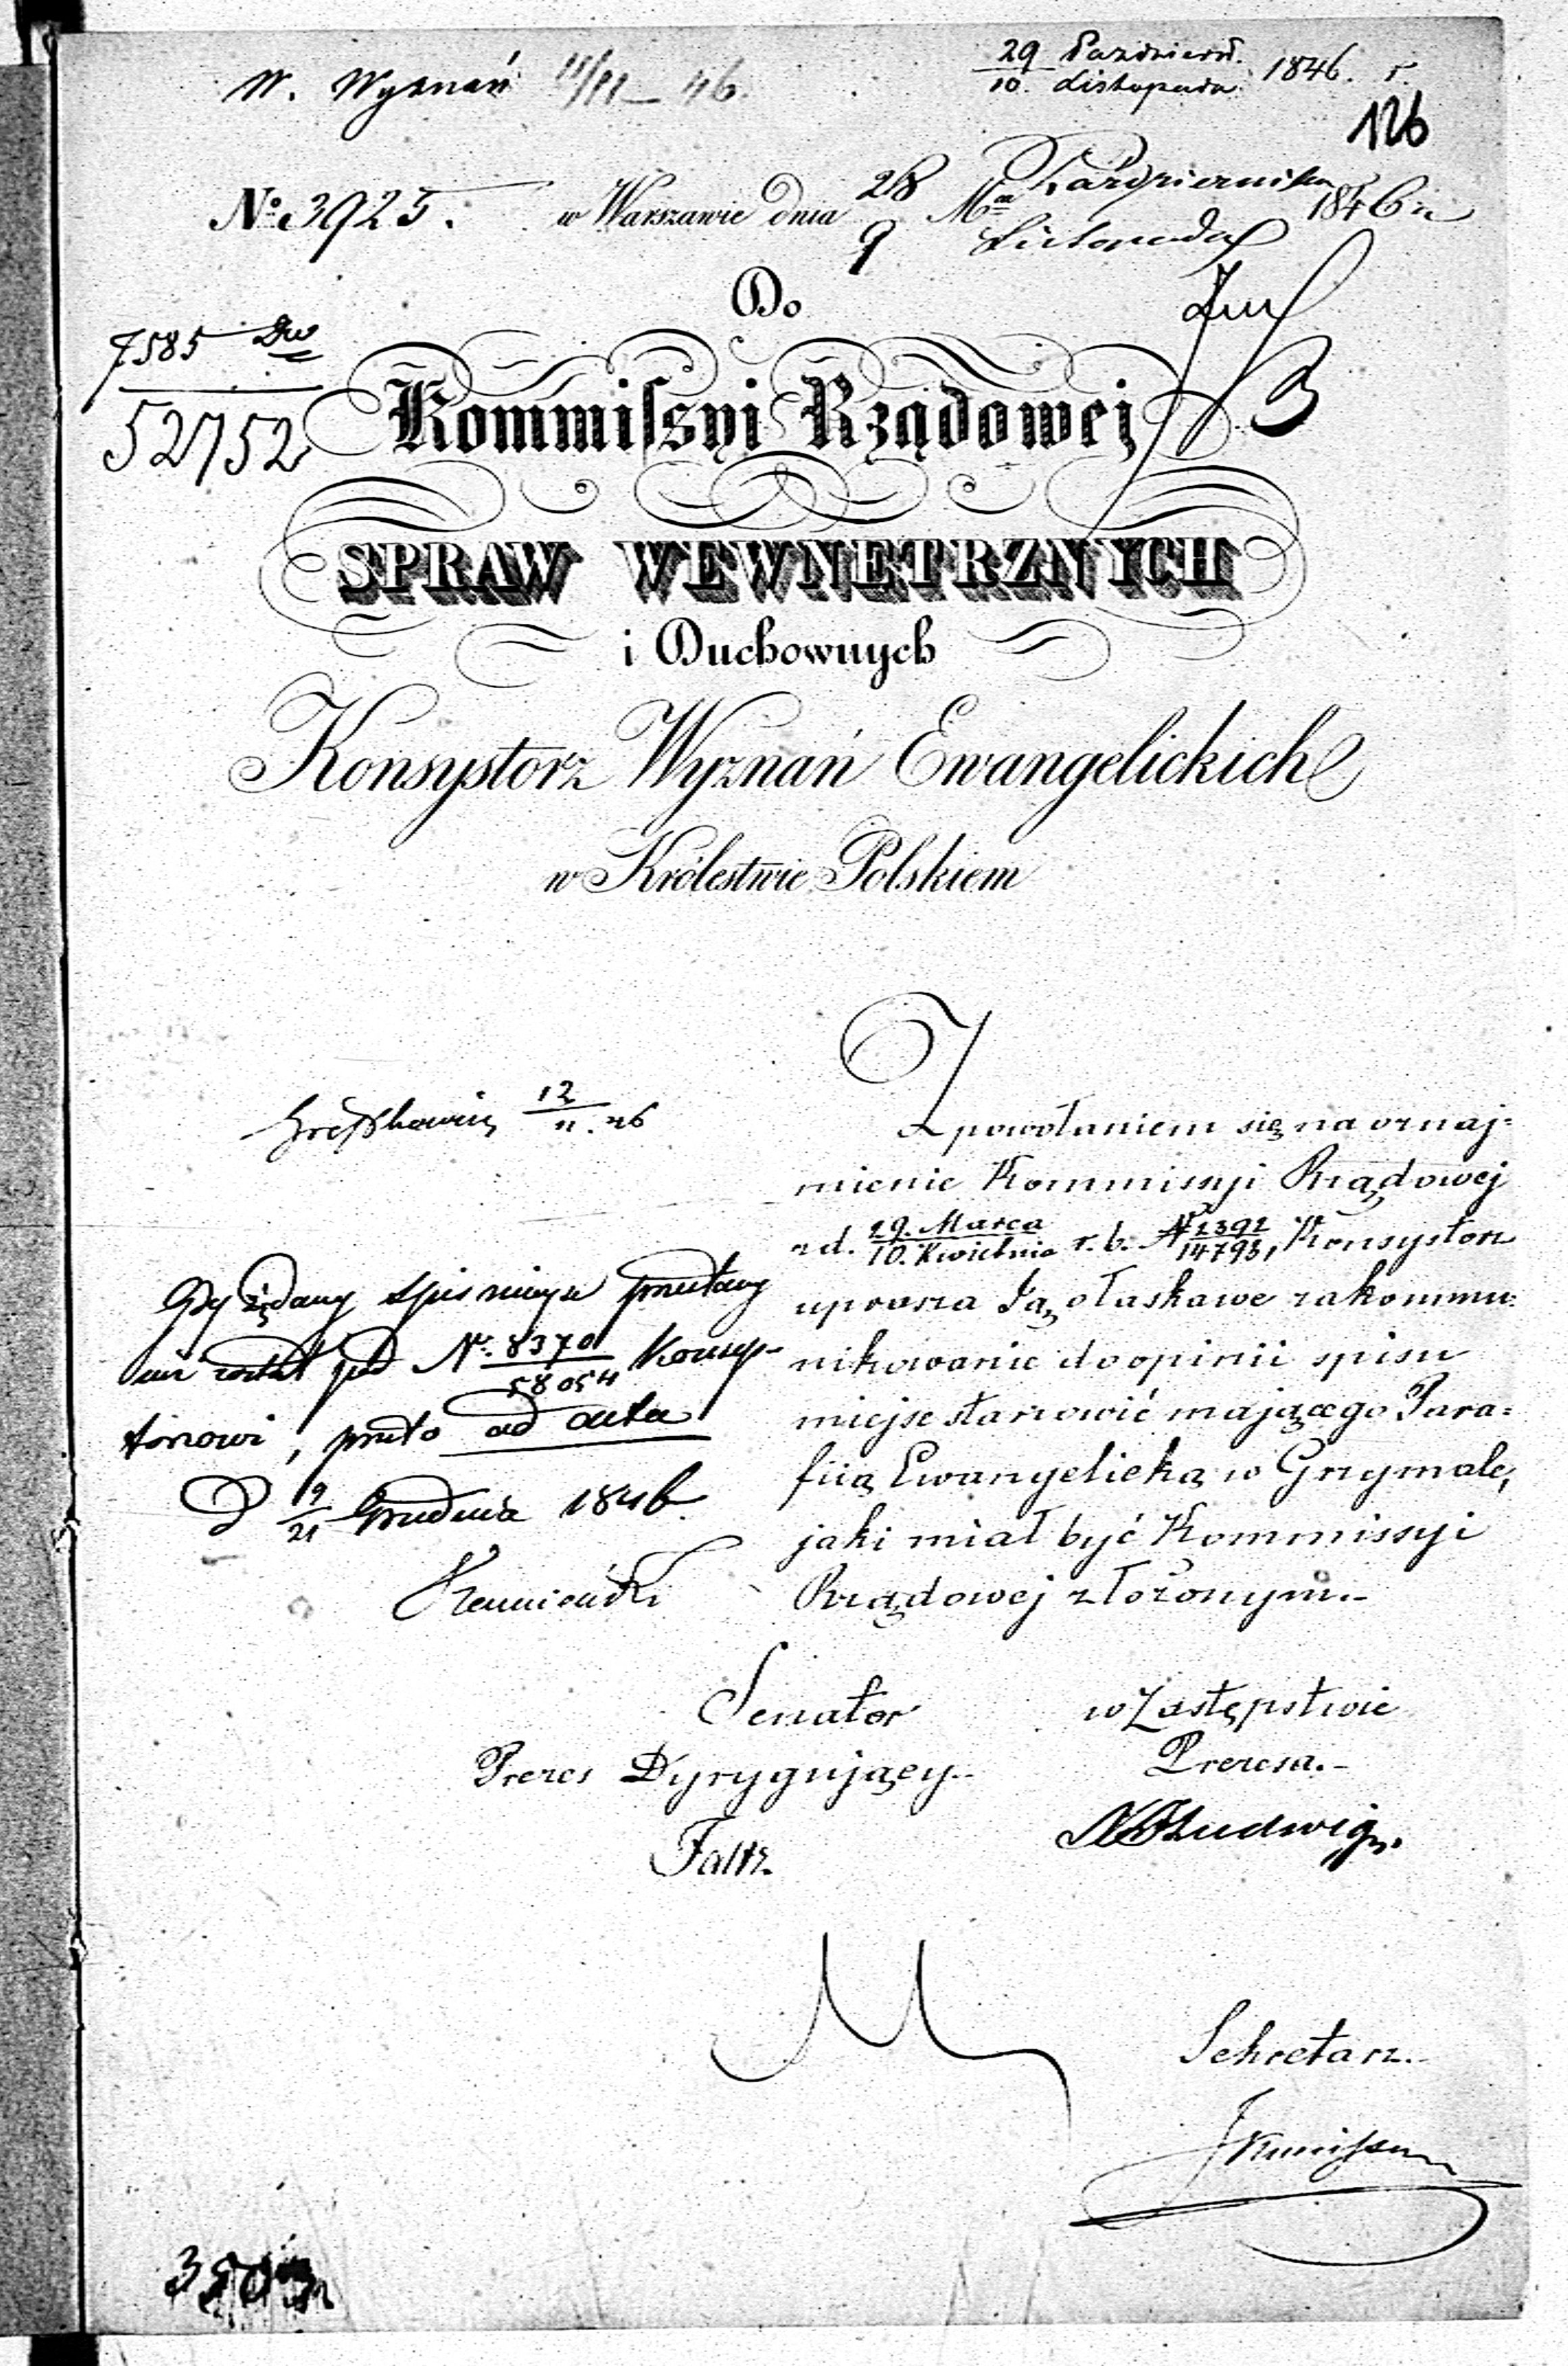 W. Wyznań 11/11 46.
29 Paździer.
10. Listopada 1846. r.
126
No 3925. w Warszawie dnia 28 Ma Października 1846 r.
9 Listopada
Do
7585
52752
Kommissyi Rządowej
SPRAW WEWNĘTRZNYCH
i Duchownych
Konsystorz Wyznań Ewangelickich
w Królestwie Polskiem
12
11. 46
Z powołaniem się na oznaj-
mienie Kommissyi Rządowej
z d. 29. Marca / 10. Kwietnia r. b. No 2392 / 14793, Konsystorz
uprasza Ją o łaskawe zakommu-
nikowanie do opinii spisu
miejsc stanowić mającego Para-
fiią Ewangelicką w Grzymale,
jaki miał być Kommissyi
Rządowej złożonym.-
Gdy żądany spis miejsc przesłany
już został pod No. 8370 / 58054 Konsys-
torzowi, przeto ad acta
D 9/21 Grudnia 1846.
Senator
Prezes Dyrygujący
w Zastępstwie
Prezesa.-
Ludwig
Sekretarz.-